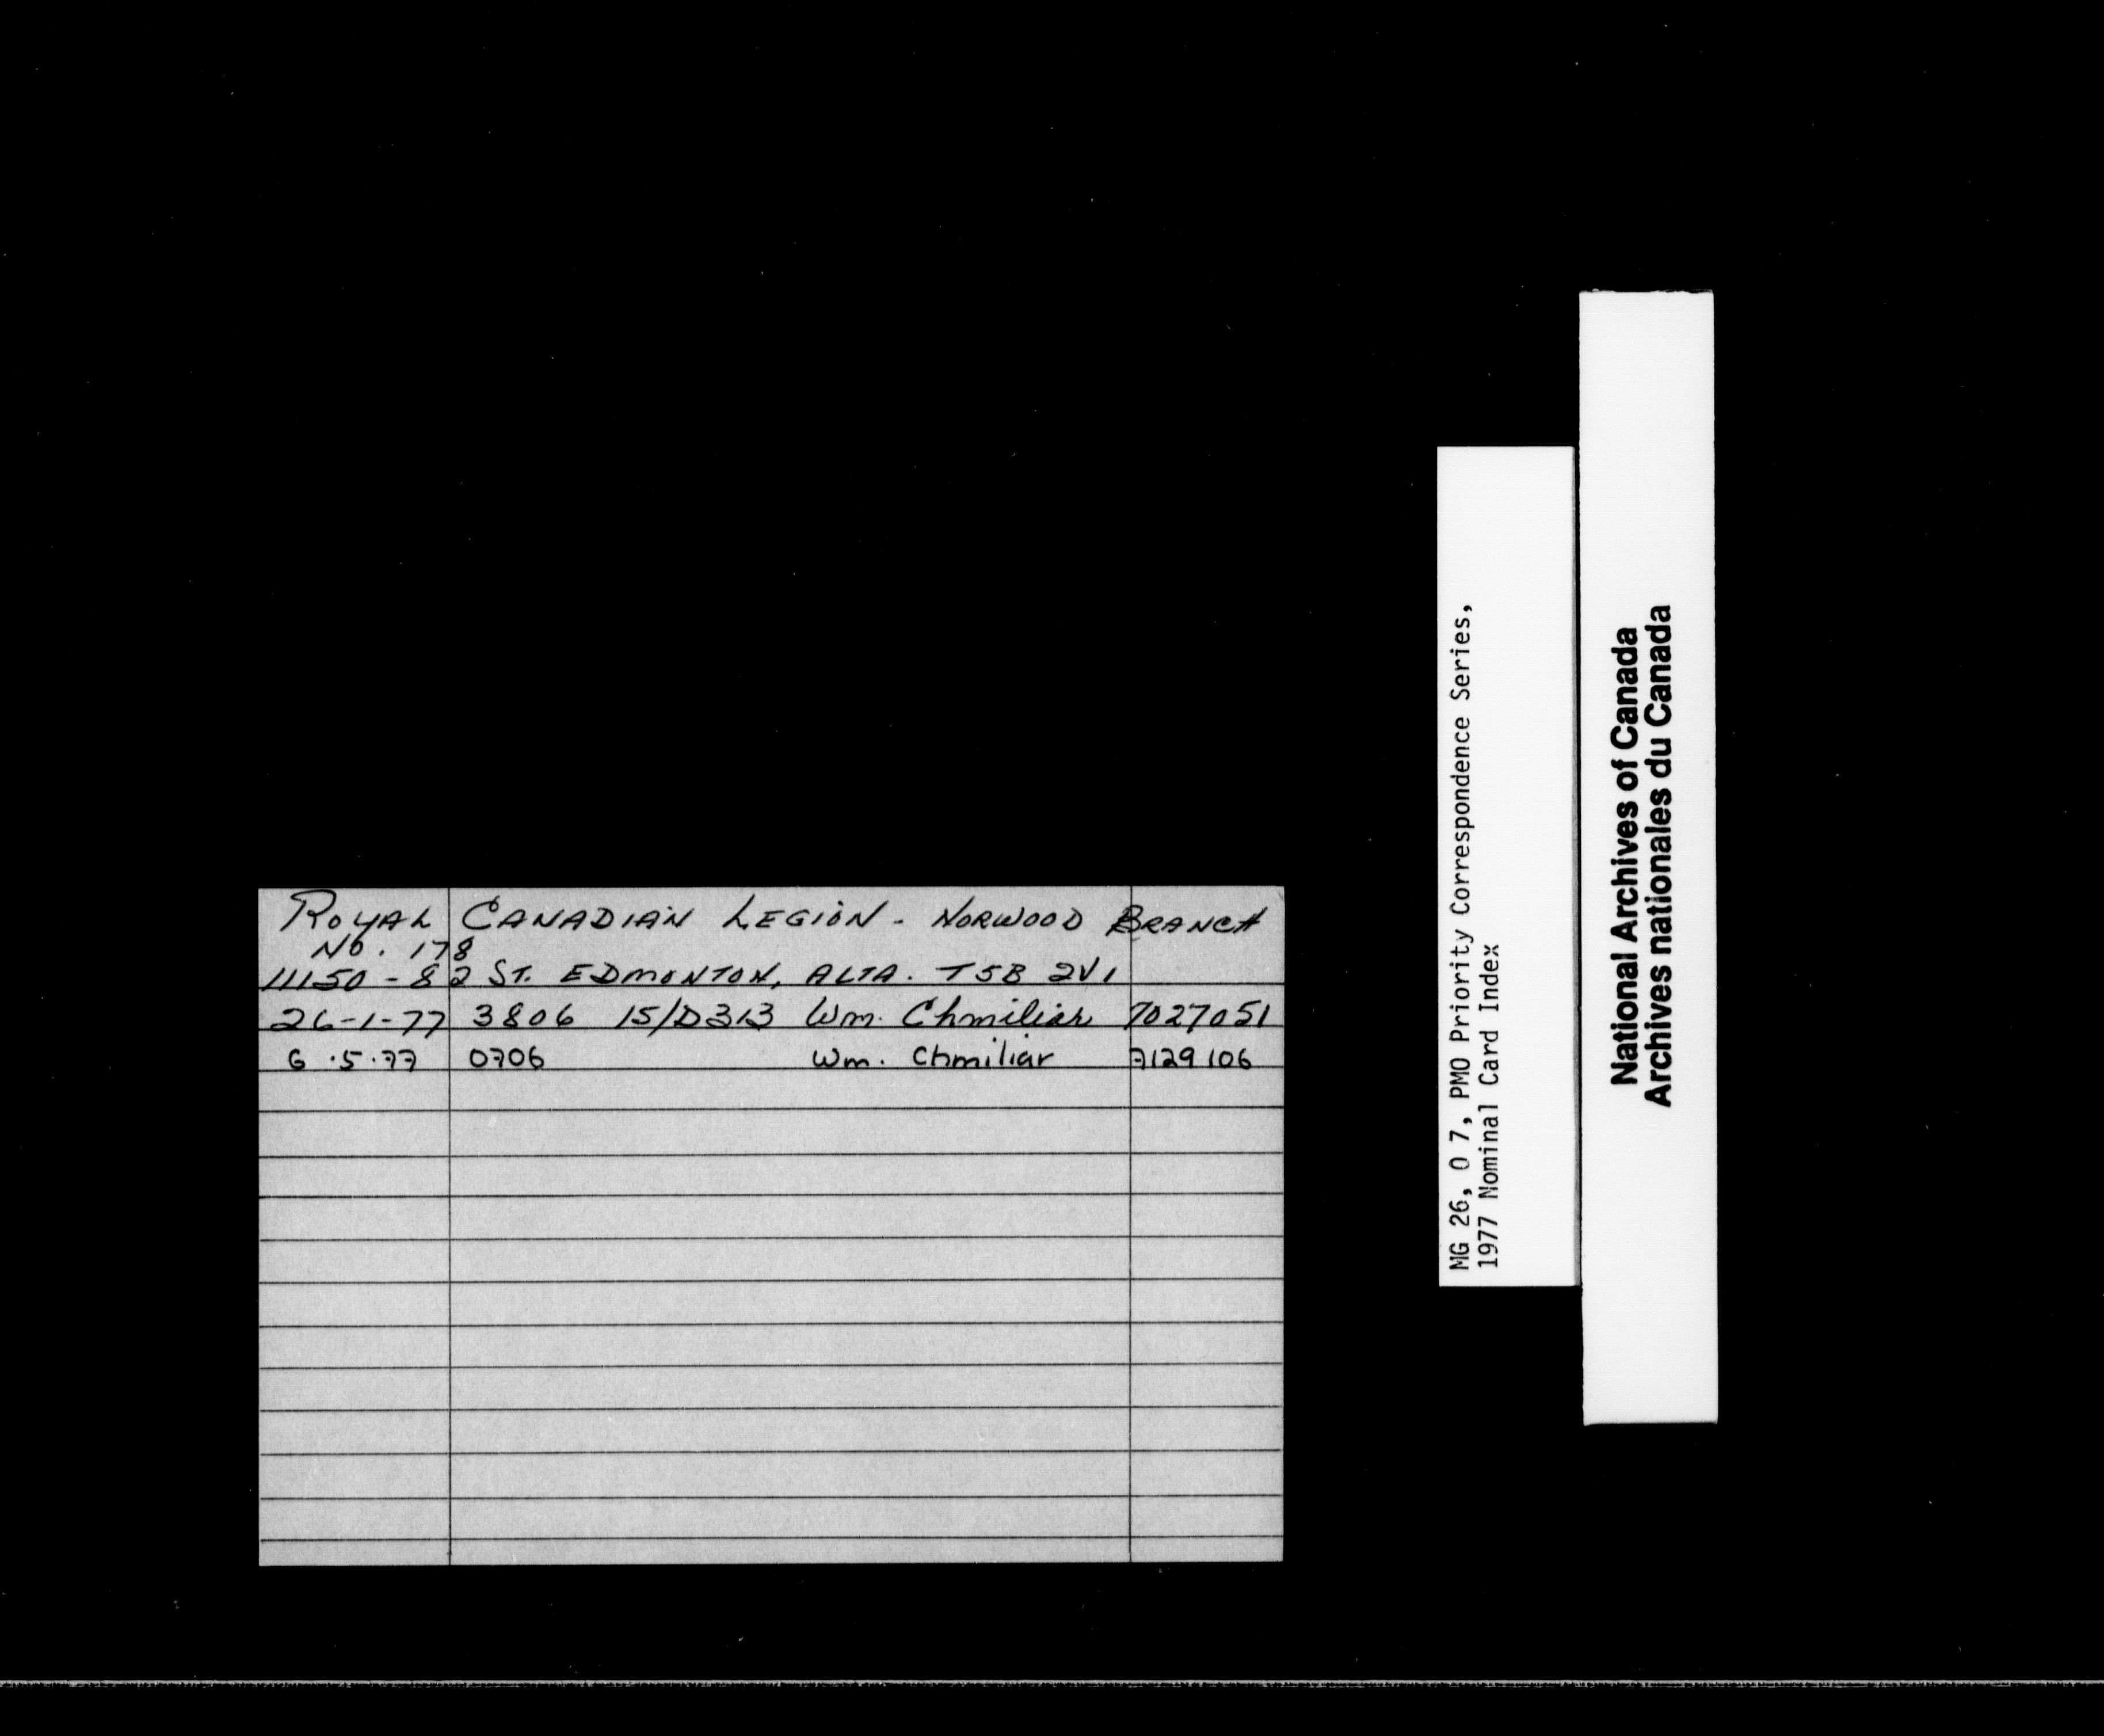 ROYAL CANADIAN LEGION - NORWOOD BRANCH
NO. 178
11150 - 82 ST. EDMONTON, ALTA. T5B 2V1
26-1-77 3806 15/D313 Wm. Chmiliar 7027051
6.5.77 0706 Wm. Chmiliar 7129106
MG 26, O 7, PMO Priority Correspondence Series,
1977 Nominal Card Index
National Archives of Canada
Archives nationales du Canada